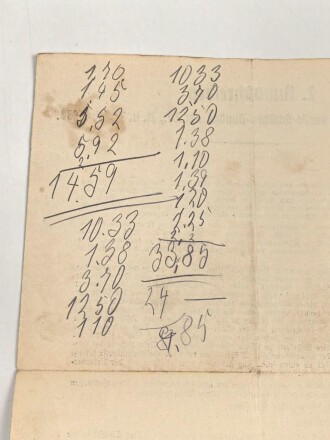 1,70
1,45
5,52
5,92
14.59
10.33
1.38
3.70
12.50
1.10
10.33
3.70
12.50
1.38
1.10
1,39
1,20
1,25
33,85
24 —
9,85